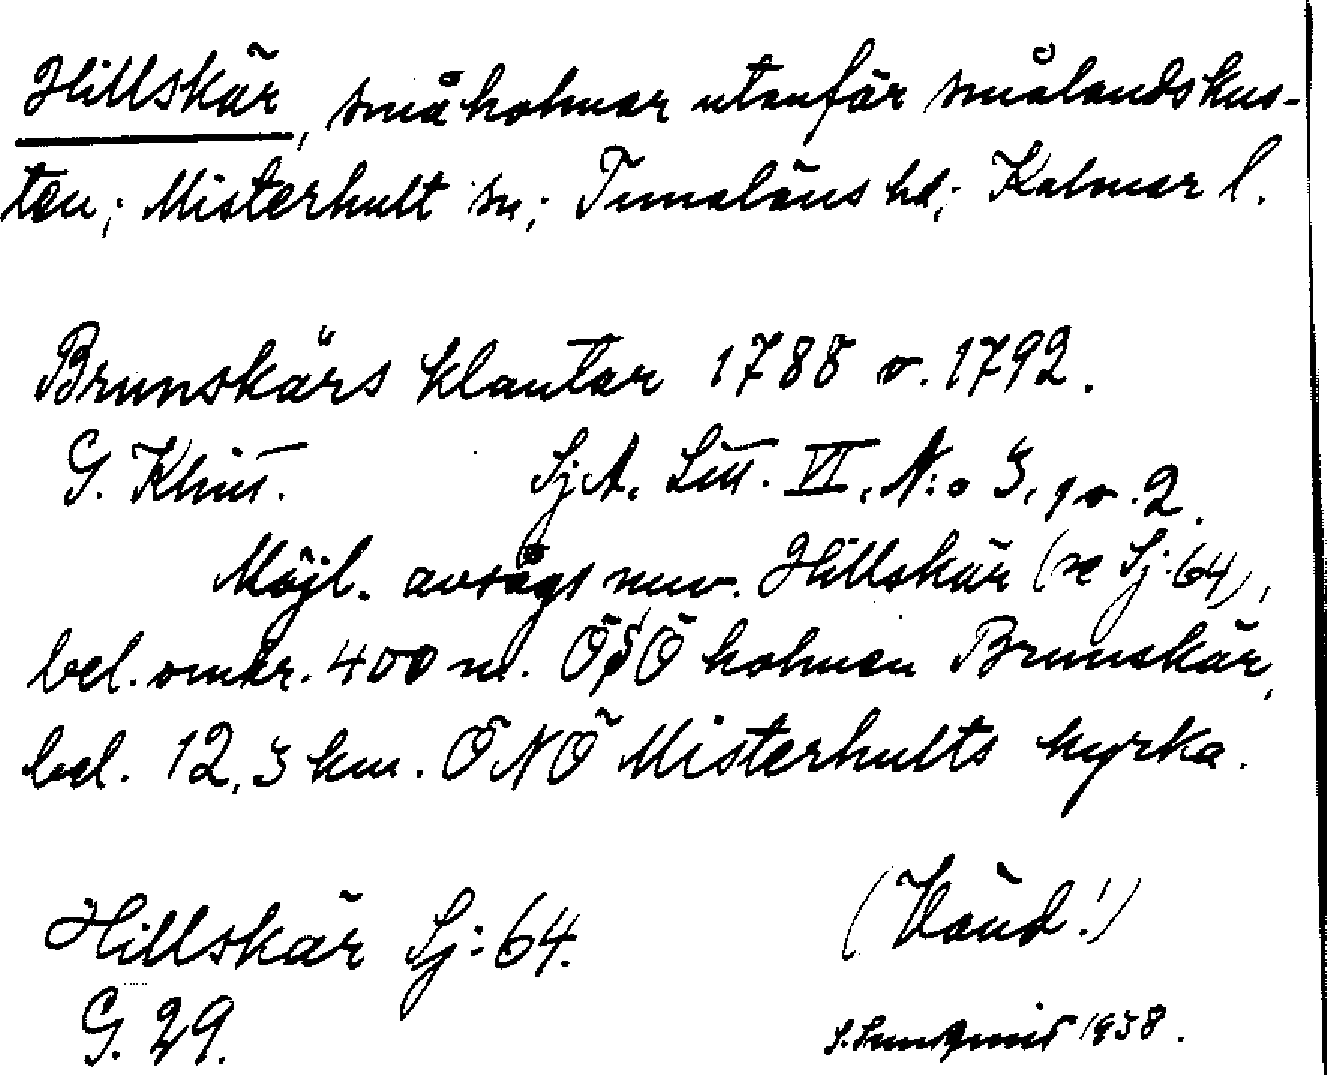 Hillskär, småholmar utanför smålandskus-
ten; Misterhult sn; Tunaläns hd; Kalmar l.
Brunskärs klantar 1788 o. 1792.
G. Klint. SjA. Litt. VI, N:o 3, 1 o. 2.
Möjl. avsågs nuv. Hillskär (se Sj:64),
bel. omkr. 400 m. ÖSÖ holmen Brunskär,
bel. 12,3 km. ÖNÖ Misterhults kyrka.
Hillskär Sj:64. (Vänd!)
G. 29. 1938.